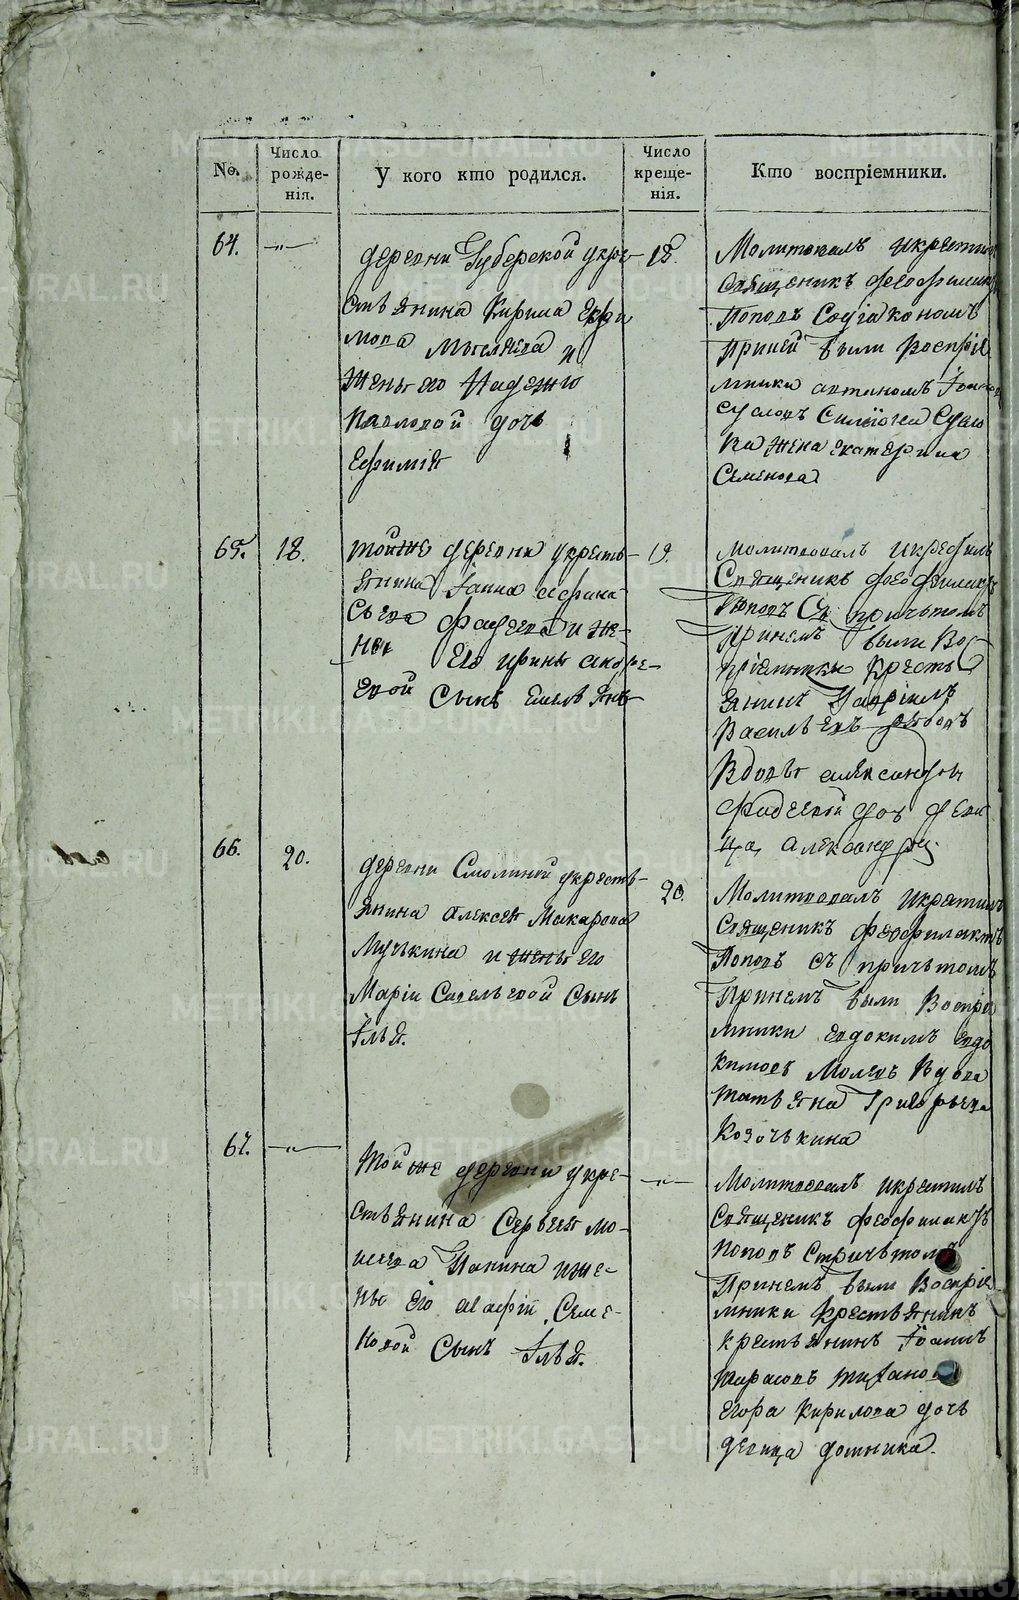 №.
Число рожде-
нія.
У кого кто родился.
Число креще-
нія.
Кто воспріемники.
64.
—"—
деревни Губерской укре-
стьянина Кирила Ефи
мова Мыслева и
жены его Надежю
Павловой дочь
Ефимія
18.
Молитвовалъ икрестил
Священникъ Феофилакт
Поповъ Содіакономъ
Приней были Воспріе
мники
Екатерина
Семенова
65.
18.
тойже деревни укресть-
янина Іанна Афана
сьева Фадеева и же-
ны Его ирины андре-
евой Сынъ Емельянъ
19.
молитвовалъ икрестилъ
Священникъ Феофилактъ
Поповъ Съ причьтомъ
Принемъ были Вос-
пріемники Кресть
янинъ Гавріилъ
Васильевъ
Вдовы александры
Фадеевой доч деви
ца Александра.
66.
20.
деревни Смолиной укресть-
янина Алексея Макарова
Мучькина и жены Его
Маріи Савельевой Сынъ
Ілья.
20.
Молитвовалъ икрестилъ
Священникъ Феофилактъ
Поповъ съ причьтомъ
Принемъ были Воспріе
мники евдокимъ евдо
кимовъ Вдова
татьяна Григорьева
Козочькина
67.
—"—
Тойже деревни укре-
стьянина Сергея мо-
исеева Панина иже-
ны Его агафіи Семе-
новой Сынъ Ілья.
—"—
Молитвовалъ икрестилъ
Священникъ Феофилактъ
Поповъ Спричьтомъ
Принемъ были Воспріе
мники Крестьянинъ
крестьянинъ Іоаннъ
Тарасовъ
Егора Кирилова дочь
девица домника.